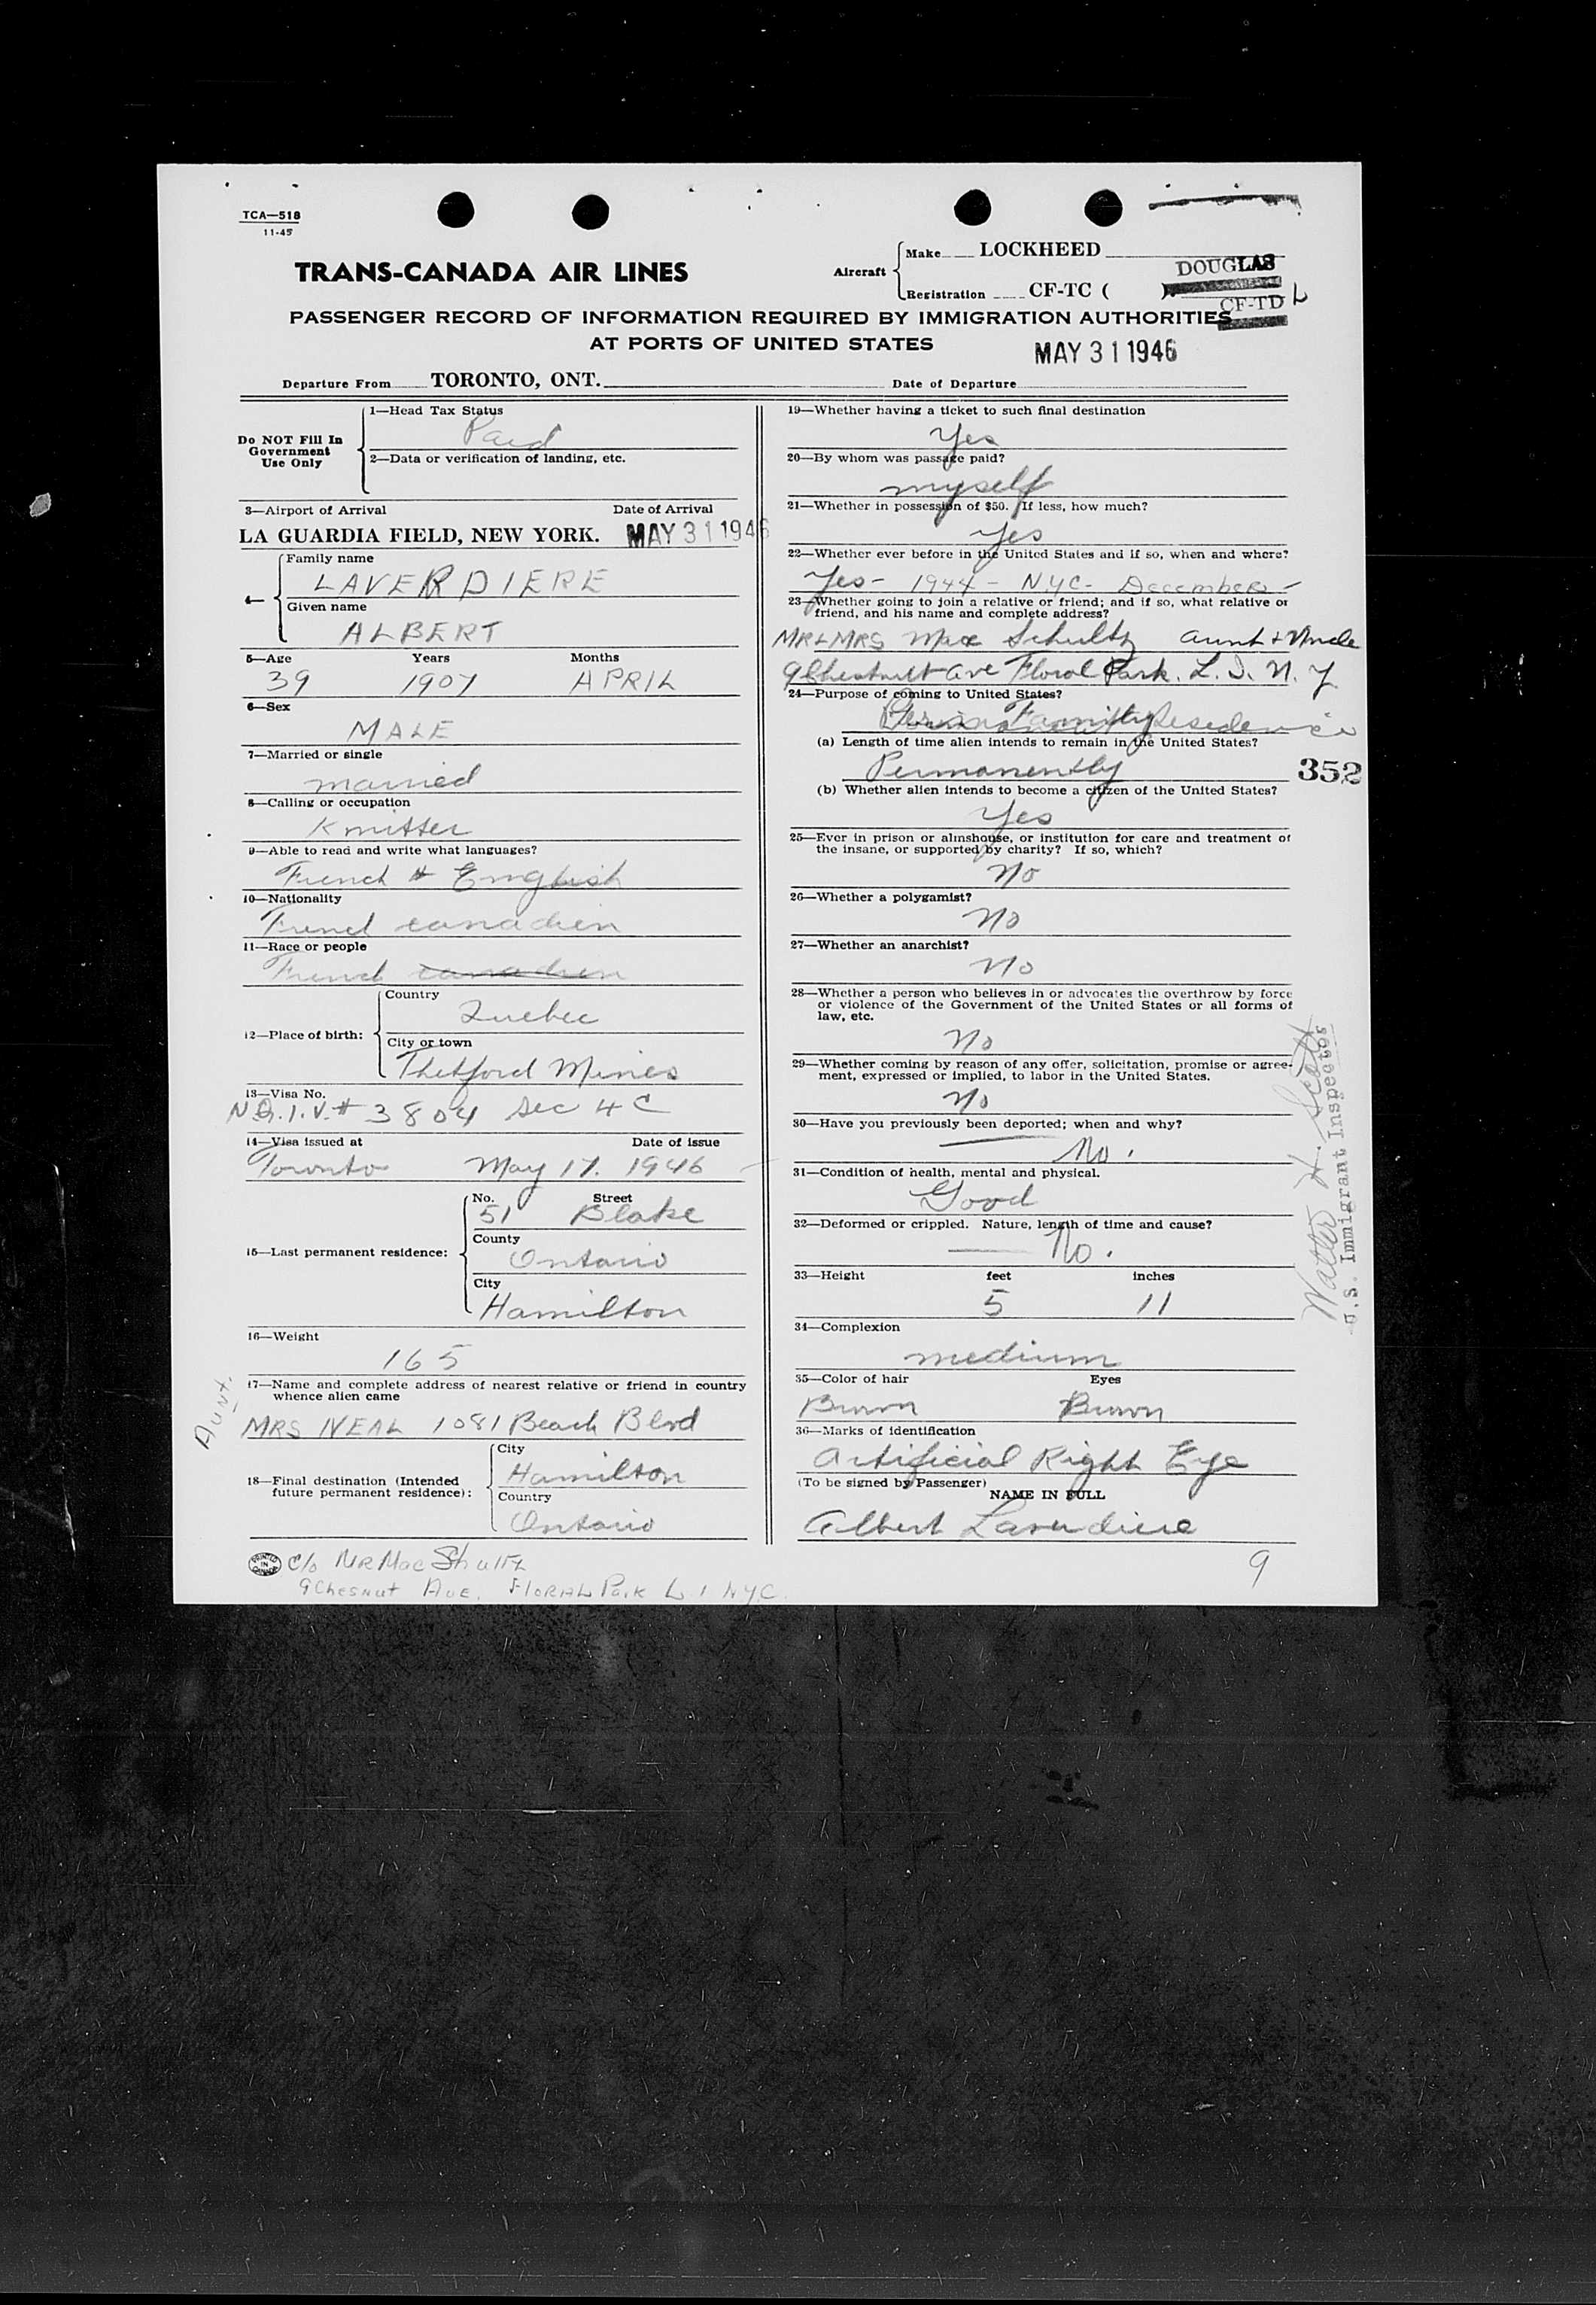 TCA—518
11-45
TRANS-CANADA AIR LINES
Aircraft
Make LOCKHEED
DOUGLAS
Registration CF-TC ( )
CF-TD L
PASSENGER RECORD OF INFORMATION REQUIRED BY IMMIGRATION AUTHORITIES
AT PORTS OF UNITED STATES
MAY 31 1946
Departure From TORONTO, ONT. Date of Departure
Do NOT Fill In
Government
Use Only
1—Head Tax Status
Paid
2—Data or verification of landing, etc.
3—Airport of Arrival Date of Arrival
LA GUARDIA FIELD, NEW YORK. MAY 31 1946
4—
Family name
LAVERDIERE
Given name
ALBERT
5—Age Years Months
39 1907 APRIL
6—Sex
MALE
7—Married or single
married
8—Calling or occupation
Knitter
9—Able to read and write what languages?
French & English
10—Nationality
French canadien
11—Race or people
French canadien
12—Place of birth:
Country
Quebec
City or town
Thetford Mines
13—Visa No.
N.Q.I.V.# 3804 Sec 4 C
14—Visa issued at Date of issue
Toronto May 17. 1946
15—Last permanent residence:
No. Street
51 Blake
County
Ontario
City
Hamilton
16—Weight
165
17—Name and complete address of nearest relative or friend in country
whence alien came
Aunt.
MRS NEAL 1081 Beach Blvd
18—Final destination (Intended
future permanent residence):
City
Hamilton
Country
Ontario
PRINTED IN CANADA
c/o MR Mac Shultz
9 Chesnut AVE. FLORAL Park L I NYC.
19—Whether having a ticket to such final destination
Yes
20—By whom was passage paid?
myself
21—Whether in possession of $50. If less, how much?
Yes
22—Whether ever before in the United States and if so, when and where?
Yes - 1944 - NYC - December -
23—Whether going to join a relative or friend; and if so, what relative or
friend, and his name and complete address?
MR & MRS Max Schultz aunt & Uncle
9 Chestnutt ave Floral Park. L. I. N. Y
24—Purpose of coming to United States?
Residence
(a) Length of time alien intends to remain in the United States?
Permanently
352
(b) Whether alien intends to become a citizen of the United States?
Yes
25—Ever in prison or almshouse, or institution for care and treatment of
the insane, or supported by charity? If so, which?
No
26—Whether a polygamist?
No
27—Whether an anarchist?
No
28—Whether a person who believes in or advocates the overthrow by force
or violence of the Government of the United States or all forms of
law, etc.
No
29—Whether coming by reason of any offer, solicitation, promise or agree-
ment, expressed or implied, to labor in the United States.
No
30—Have you previously been deported; when and why?
No.
31—Condition of health, mental and physical.
Good
32—Deformed or crippled. Nature, length of time and cause?
No.
33—Height feet inches
5 11
34—Complexion
medium
35—Color of hair Eyes
Brown Brown
36—Marks of identification
Artificial Right Eye
(To be signed by Passenger)
NAME IN FULL
Albert Laverdiere
9
Walter H.
U.S. Immigrant Inspector